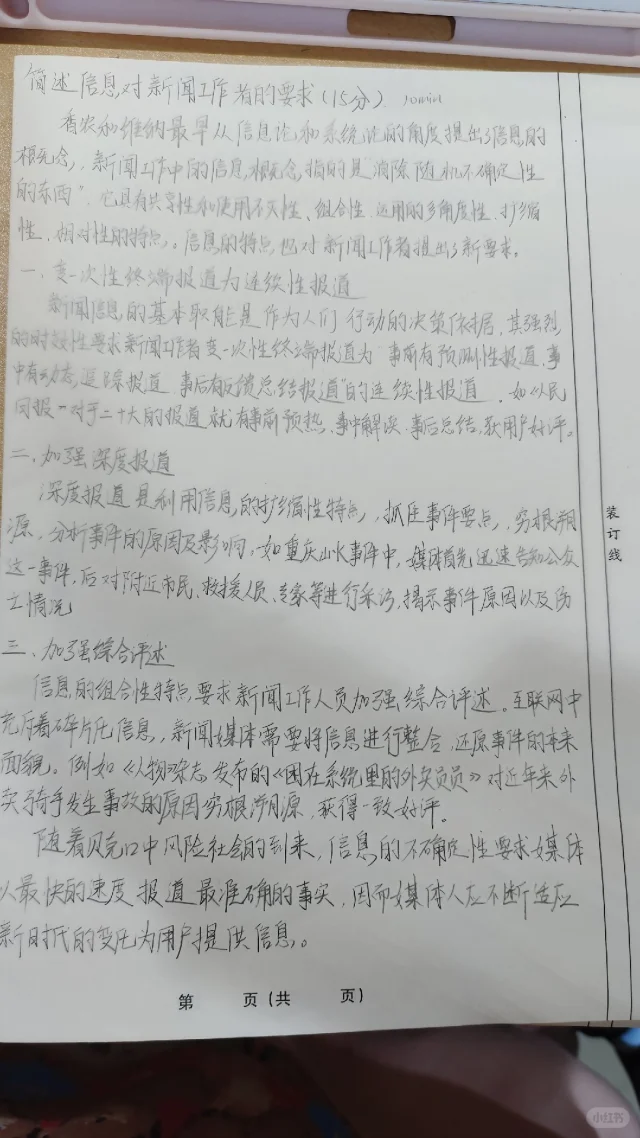 简述信息对新闻工作者的要求(15分) 10min
香农和维纳最早从信息论和系统论的角度提出了信息的
概念,新闻工作中的信息概念,指的是"消除随机不确定性
的东西"。它具有共享性和使用不灭性、组合性、运用的多角度性、扩缩
性、相对性的特点。信息的特点也对新闻工作者提出了新要求。
一、变一次性终端报道为连续性报道
新闻信息的基本职能是作为人们行动的决策依据,其强烈
的时效性要求新闻工作者变一次性终端报道为"事前有预测性报道、事
中有动态追踪报道、事后有反馈总结报道"的连续性报道。如《人民
日报》对于二十大的报道就有事前预热、事中解读、事后总结,获用户好评。
二、加强深度报道
深度报道是利用信息的扩缩性特点,抓住事件要点,穷根溯
源,分析事件的原因及影响,如重庆山火事件中,媒体首先迅速告知公众
这一事件,后对附近市民、救援人员、专家等进行采访,揭示事件原因以及伤
亡情况
三、加强综合评述
信息的组合性特点要求新闻工作人员加强综合评述。互联网中
充斥着碎片化信息,新闻媒体需要将信息进行整合,还原事件的本来
面貌。例如《人物》杂志发布的《困在系统里的外卖员》对近年来外
卖骑手发生事故的原因穷根溯源,获得一致好评。
随着贝克口中风险社会的到来,信息的不确定性要求媒体
以最快的速度报道最准确的事实,因而媒体人应不断适应
新时代的变化为用户提供信息。
装订线
第 页(共 页)
小红书